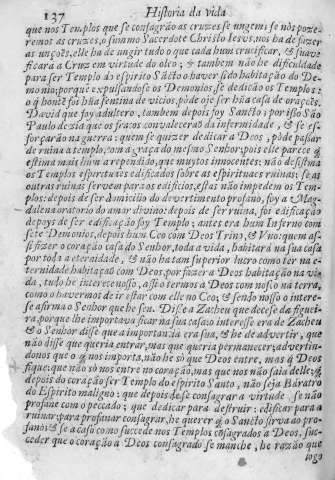 137 Historia da vida
que nos Templos que se consagrão as cruzes se ungem; se nòs poze-
remos as cruzes, o summo Sacerdote Christo Iesus, nos ha de fazer
as unções, elle ha de ungir tudo o que cada hum crucificar, & suave
ficarà a Cruz em virtude do oleo; & tambem não he dificuldade
para ser Templo do espirito Sãcto o haver sido habitação do De-
monio; porque expulsandose os Demonios, se dedicão os Templos:
o q̃ hontẽ foi hũa sentina de vicios, pòde oje ser hũa casa de orações.
David que foy adultero, tambem depois foy Sancto; por isso São
Paulo dezia que os fracos convalecerão da infermidade, & se es-
forçarão na guerra: quem se quizer dedicar a Deos, pòde passar
de ruina a templo, com a graça do mesmo Senhor; pois elle parece q̃
estima mais hum arrependido, que muytos innocentes: não desestima
os Templos espirituaes edificados sobre as espirituaes ruinas: se as
outras ruinas servem para os edificios, estas não impedem os Tem-
plos: depois de ser domicilio do devertimento profano, foy a Mag-
dalena oratorio do amor divino: depois de ser ruina, foi edificação
depoys de ser edificação foy Templo; antes era hum Inferno com
sete Demonios, depois hum Ceo com Deos Trino, & Vno: quem as-
si fizer o coração casa do Senhor, toda a vida, habitarà na sua casa
por toda a eternidade, & não ha tam superior lucro como ter na e-
ternidade habitação com Deos, por fazer a Deos habitação na vi-
da, tudo he interece nosso, assi o termos a Deos com nosco na terra,
como o havermos de ir estar com elle no Ceo; & sendo nosso o interes-
se afirma o Senhor que he seu. Disse a Zacheu que decese da figuei-
ra, porque lhe importava ficar na sua casa: o interesse era de Zacheu
& o Senhor disse que a importancia era sua, & he de advertir, que
não disse que queria entrar, mas que queria permanecer; advertin-
donos que o q̃ nos importa, não he só que Deos entre, mas q̃ Deos
fique: que não só nos entre no coração, mas que nos não saia delle; q̃
depois do coração ser Templo do espirito Santo, não seja Báratro
do Espirito maligno: que depois de se consagrar a virtude, se não
profane com o peccado; que dedicar para destruir: edificar para a
ruinar: para profanar consagrar, he querer q̃ o Sancto sirva ao pro-
fano: & se a caso como succede nos Templos consagrados a Deos, suc-
ceder que o coração a Deos consagrado se manche, he razão que
logo